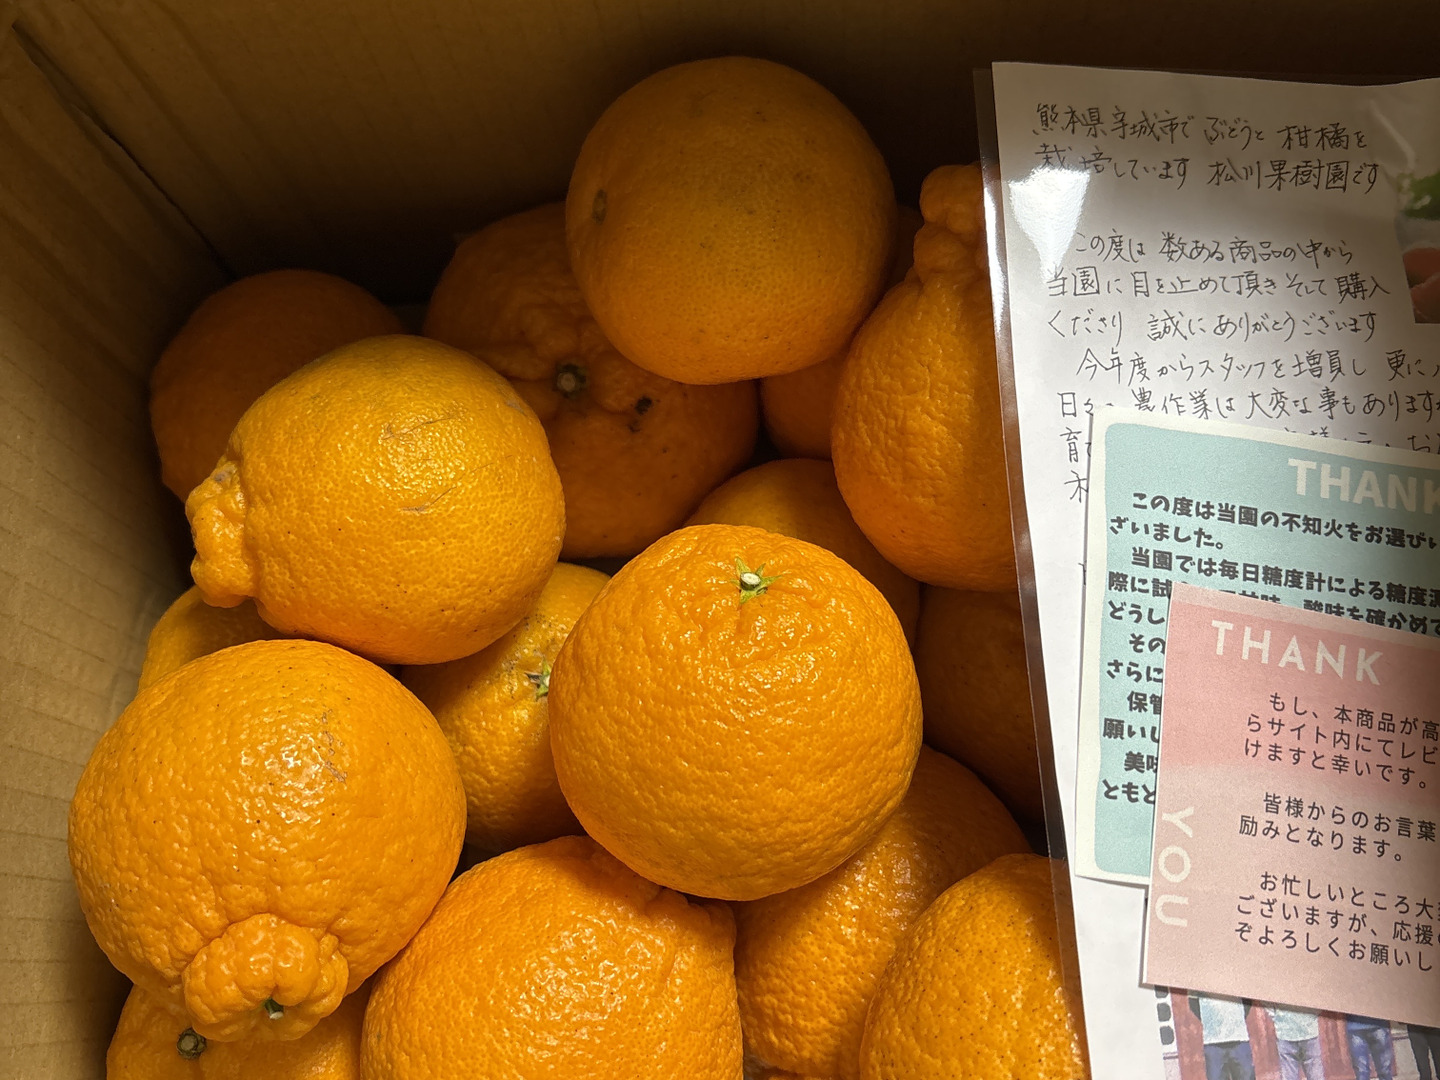 熊本県宇城市で ぶどうと 柑橘を
栽培しています 松川果樹園です
この度は 数ある商品の中から
当園に目を止めて頂き そして購入
くださり 誠にありがとうございます
今年度からスタッフを増員し 更に
日々 農作業は 大変な事もあります
育
THANK
この度は当園の不知火をお選びい
ざいました。
当園では毎日糖度計による糖度測
際に試 酸味を確かめて
どうし
その
さらに
保管
願いし
美味
ともと
THANK
YOU
もし、本商品が高
らサイト内にてレビ
けますと幸いです。
皆様からのお言葉
励みとなります。
お忙しいところ大変
ございますが、応援
ぞよろしくお願いし